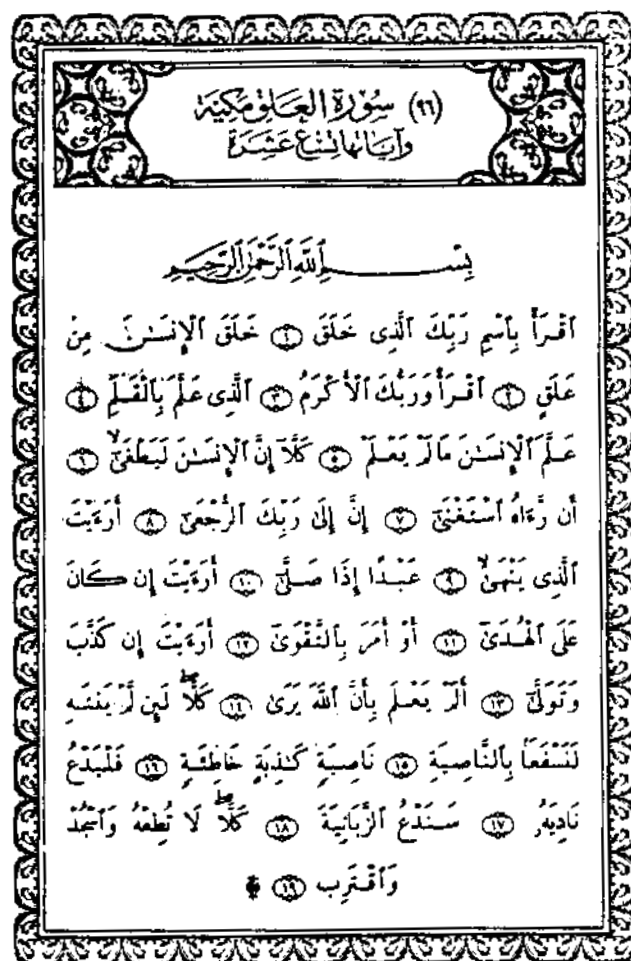 (٩٦) سُورَة العَلق مَكيّة
وَآياتها تِسْع عَشَرَة
بِسْمِ ٱللَّهِ ٱلرَّحْمَٰنِ ٱلرَّحِيمِ
ٱقْرَأْ بِٱسْمِ رَبِّكَ ٱلَّذِى خَلَقَ ١ خَلَقَ ٱلْإِنسَٰنَ مِنْ
عَلَقٍ ٢ ٱقْرَأْ وَرَبُّكَ ٱلْأَكْرَمُ ٣ ٱلَّذِى عَلَّمَ بِٱلْقَلَمِ ٤
عَلَّمَ ٱلْإِنسَٰنَ مَا لَمْ يَعْلَمْ ٥ كَلَّآ إِنَّ ٱلْإِنسَٰنَ لَيَطْغَىٰٓ ٦
أَن رَّءَاهُ ٱسْتَغْنَىٰٓ ٧ إِنَّ إِلَىٰ رَبِّكَ ٱلرُّجْعَىٰٓ ٨ أَرَءَيْتَ
ٱلَّذِى يَنْهَىٰ ٩ عَبْدًا إِذَا صَلَّىٰٓ ١٠ أَرَءَيْتَ إِن كَانَ
عَلَى ٱلْهُدَىٰٓ ١١ أَوْ أَمَرَ بِٱلتَّقْوَىٰٓ ١٢ أَرَءَيْتَ إِن كَذَّبَ
وَتَوَلَّىٰٓ ١٣ أَلَمْ يَعْلَم بِأَنَّ ٱللَّهَ يَرَىٰ ١٤ كَلَّا لَئِن لَّمْ يَنتَهِ
لَنَسْفَعًۢا بِٱلنَّاصِيَةِ ١٥ نَاصِيَةٍ كَٰذِبَةٍ خَاطِئَةٍ ١٦ فَلْيَدْعُ
نَادِيَهُۥ ١٧ سَنَدْعُ ٱلزَّبَانِيَةَ ١٨ كَلَّا لَا تُطِعْهُ وَٱسْجُدْ
وَٱقْتَرِب ١٩